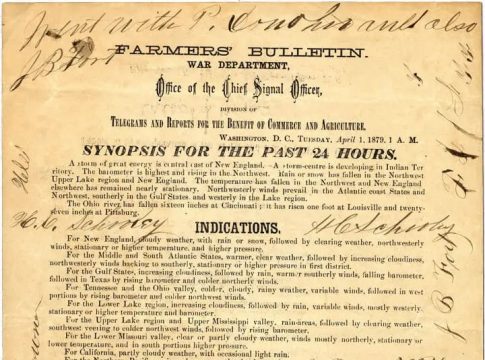 Went with P. Donoher and also
J B Fort
FARMERS' BULLETIN.
WAR DEPARTMENT,
Office of the Chief Signal Officer,
DIVISION OF
TELEGRAMS AND REPORTS FOR THE BENEFIT OF COMMERCE AND AGRICULTURE.
WASHINGTON, D. C., TUESDAY, April 1, 1879, 1 A. M.
SYNOPSIS FOR THE PAST 24 HOURS.
A storm of great energy is central east of New England. A storm-centre is developing in Indian Ter
ritory. The barometer is highest and rising in the Northwest. Rain or snow has fallen in the Northwest
Upper Lake region and New England. The temperature has fallen in the Northwest and New England
elsewhere has remained nearly stationary. Northwesterly winds prevail in the Atlantic coast States and
Northwest, southerly in the Gulf States and westerly in the Lake region.
The Ohio river has fallen sixteen inches at Cincinnati; it has risen one foot at Louisville and twenty-
seven inches at Pittsburg.
H. C. Schooley
H C Schooley
INDICATIONS.
For New England, cloudy weather, with rain or snow, followed by clearing weather, northwesterly
winds, stationary or higher temperature, and higher pressure.
For the Middle and South Atlantic States, warmer, clear weather, followed by increasing cloudiness,
northwesterly winds backing to southerly, stationary or higher pressure in first district.
For the Gulf States, increasing cloudiness, followed by rain, warmer southerly winds, falling barometer,
followed in Texas by rising barometer and colder northerly winds.
For Tennessee and the Ohio valley, colder, cloudy, rainy weather, variable winds, followed in west
portions by rising barometer and colder northwest winds.
For the Lower Lake region, increasing cloudiness, followed by rain, variable winds, mostly westerly,
stationary or higher temperature and barometer.
For the Upper Lake region and Upper Mississippi valley, rain-areas, followed by clearing weather,
southwest veering to colder northwest winds, followed by rising barometer.
For the Lower Missouri valley, clear or partly cloudy weather, winds mostly northerly, stationary or
lower temperature, and in south portions higher pressure.
For California, partly cloudy weather, with occasional light rain.